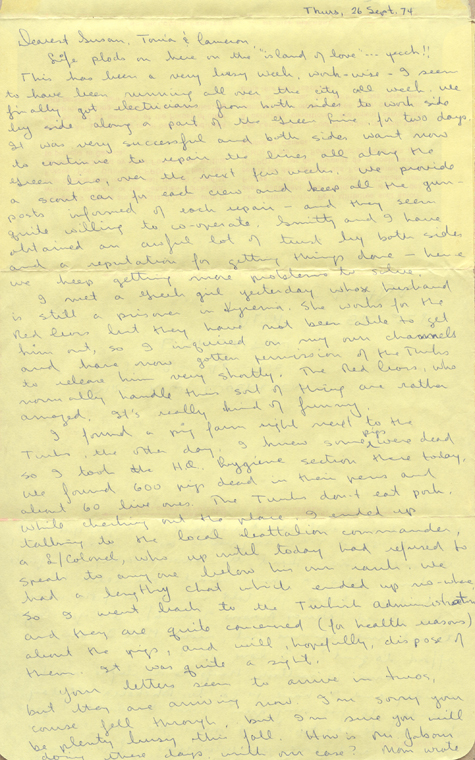 Thurs, 26 Sept. 74
Dearest Susan, Tonia & Cameron,
Life plods on here on the "island of love"... yecch!!
This has been a very busy week, work-wise - I seem
to have been running all over the city all week. We
finally got electricians from both sides to work side
by side along a part of the Green line for two days.
It was very successful and both sides want now
to continue to repair the lines all along the
Green line, over the next few weeks. We provide
a scout car for each crew and keep all the gun-
posts informed of each repair - and they seem
quite willing to co-operate. Smitty and I have
obtained an awful lot of trust by both sides
and a reputation for getting things done - hence
we keep getting more problems to solve.
I met a Greek girl yesterday whose husband
is still a prisoner in Kyrenia. She works for the
Red Cross but they have not been able to get
him out, so I inquired on my own channels
and have now gotten permission of the Turks
to release him very shortly. The Red Cross, who
normally handle this sort of thing are rather
amazed. It's really kind of funny.
I found a pig farm right next to the
Turks the other day. I knew some pigs were dead
so I took the H.Q. hygiene section there today,
we found 600 pigs dead in their pens and
about 60 live ones. The Turks don't eat pork.
While checking out the place I ended up
talking to the local battalion commander,
a L/Colonel, who up until today had refused to
speak to anyone below his own rank. We
had a lengthy chat which ended up no-where
so I went back to the Turkish Administration
and they are quite concerned (for health reasons)
about the pigs, and will, hopefully, dispose of
them. It was quite a sight.
Your letters seem to arrive in twos,
but they are arriving now. I'm sorry your
course fell through, but I'm sure you will
be plenty busy this fall. How is Mr.
doing these days with our case? Mom wrote